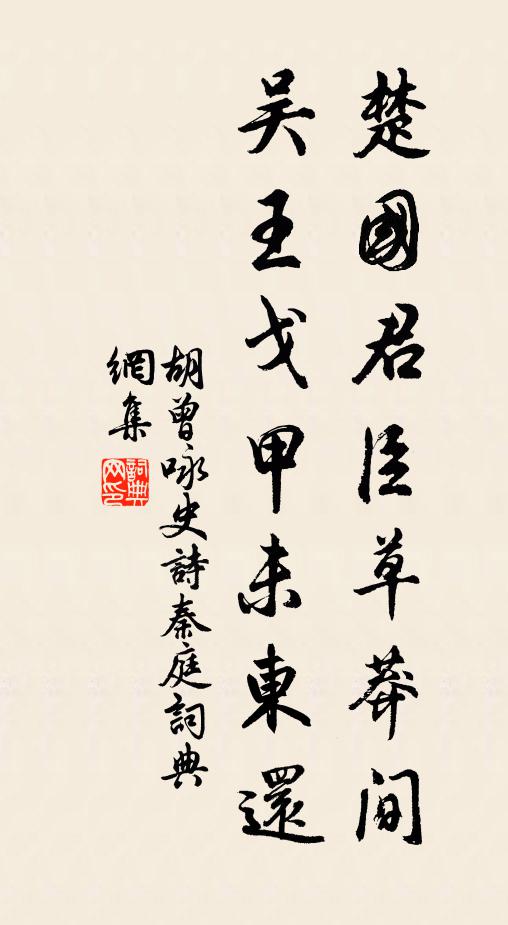 楚國君臣草莽间
吴王戈甲未東還
胡曾咏史詩秦庭詞典
網集
詞典網印